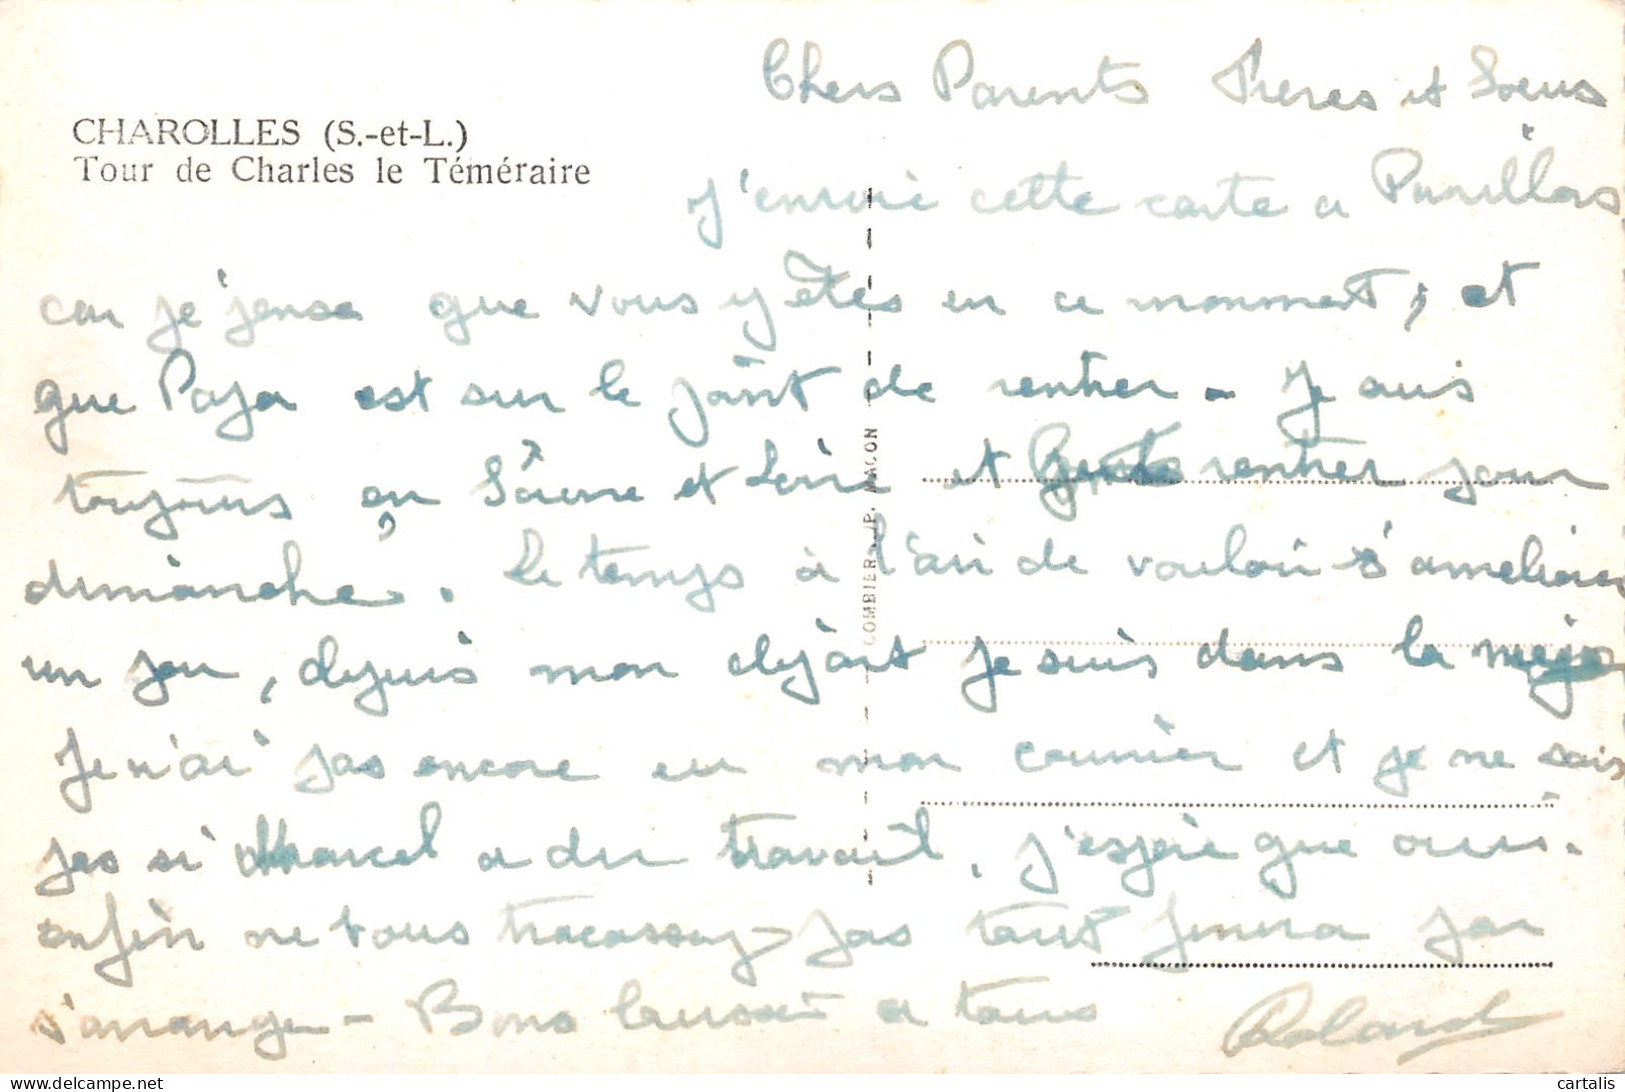 CHAROLLES (S.-et-L.)
Tour de Charles le Téméraire
Chers Parents Frères et Soeurs
J'envoie cette carte a
car je pense que vous y êtes en ce momment, et
que Papa est sur le point de rentrer - Je suis
toujours en Sâone et Loire et rentrer pour
dimanche. Le temps à l'air de vouloir s'ameliorer
un peu, depuis mon départ je suis dans la
Je n'ai pas encore eu mon courrier et je ne sais
pas si Marcel a du travail, j'espère que oui.
enfin ne vous tracassez pas tout finira par
s'arranger - Bons a tous
Roland
COMBIER IMP. MACON
cartalis